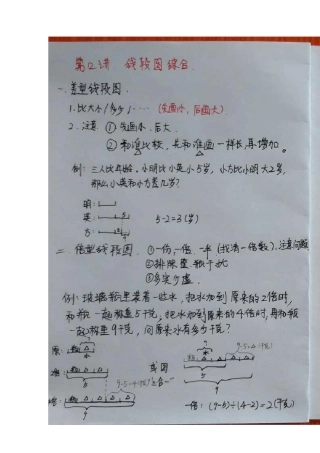 第2讲 线段图综合
一.差型线段图.
1.比大小/多少/…… (先画小,后画大)
2.注意 ①先画小.后大
②和谁比较,先和谁画一样长,再增加。
例:三人比年龄。小明比小英小5岁,小方比小明大2岁,
那么小英和小方差几岁?
明:
英: 5
方: 2
5-2=3(岁)
二.倍型线段图 ①一份,一倍,一半(找清一倍数).注意问题
②排除 干扰
③多実少虚
例:玻璃瓶里装着一些水,把水加到原来的2倍时,
和瓶一起称重5千克,把水加到原来的4倍时,再和瓶
一起称重9千克,问原来水有多少千克?
原: 瓶
增: 瓶 5
9-5=4(千克)
增: 瓶 9
或图
?
9-5=4(千克)
瓶
5
9
一倍:(9-5)÷(4-2)=2(千克)